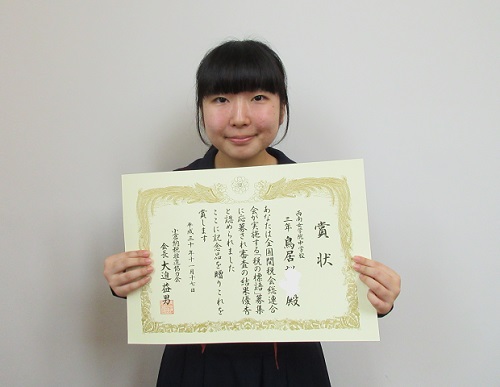 賞状
西南女学院中学校
三年 鳥居 殿
あなたは全国間税会総連合
会が実施する「税の標語」募集
に応募され審査の結果優秀
と認められました
ここに記念品を贈りこれを
賞します
平成三十年十一月十七日
小倉納税推進協力会
会長 大迫益男